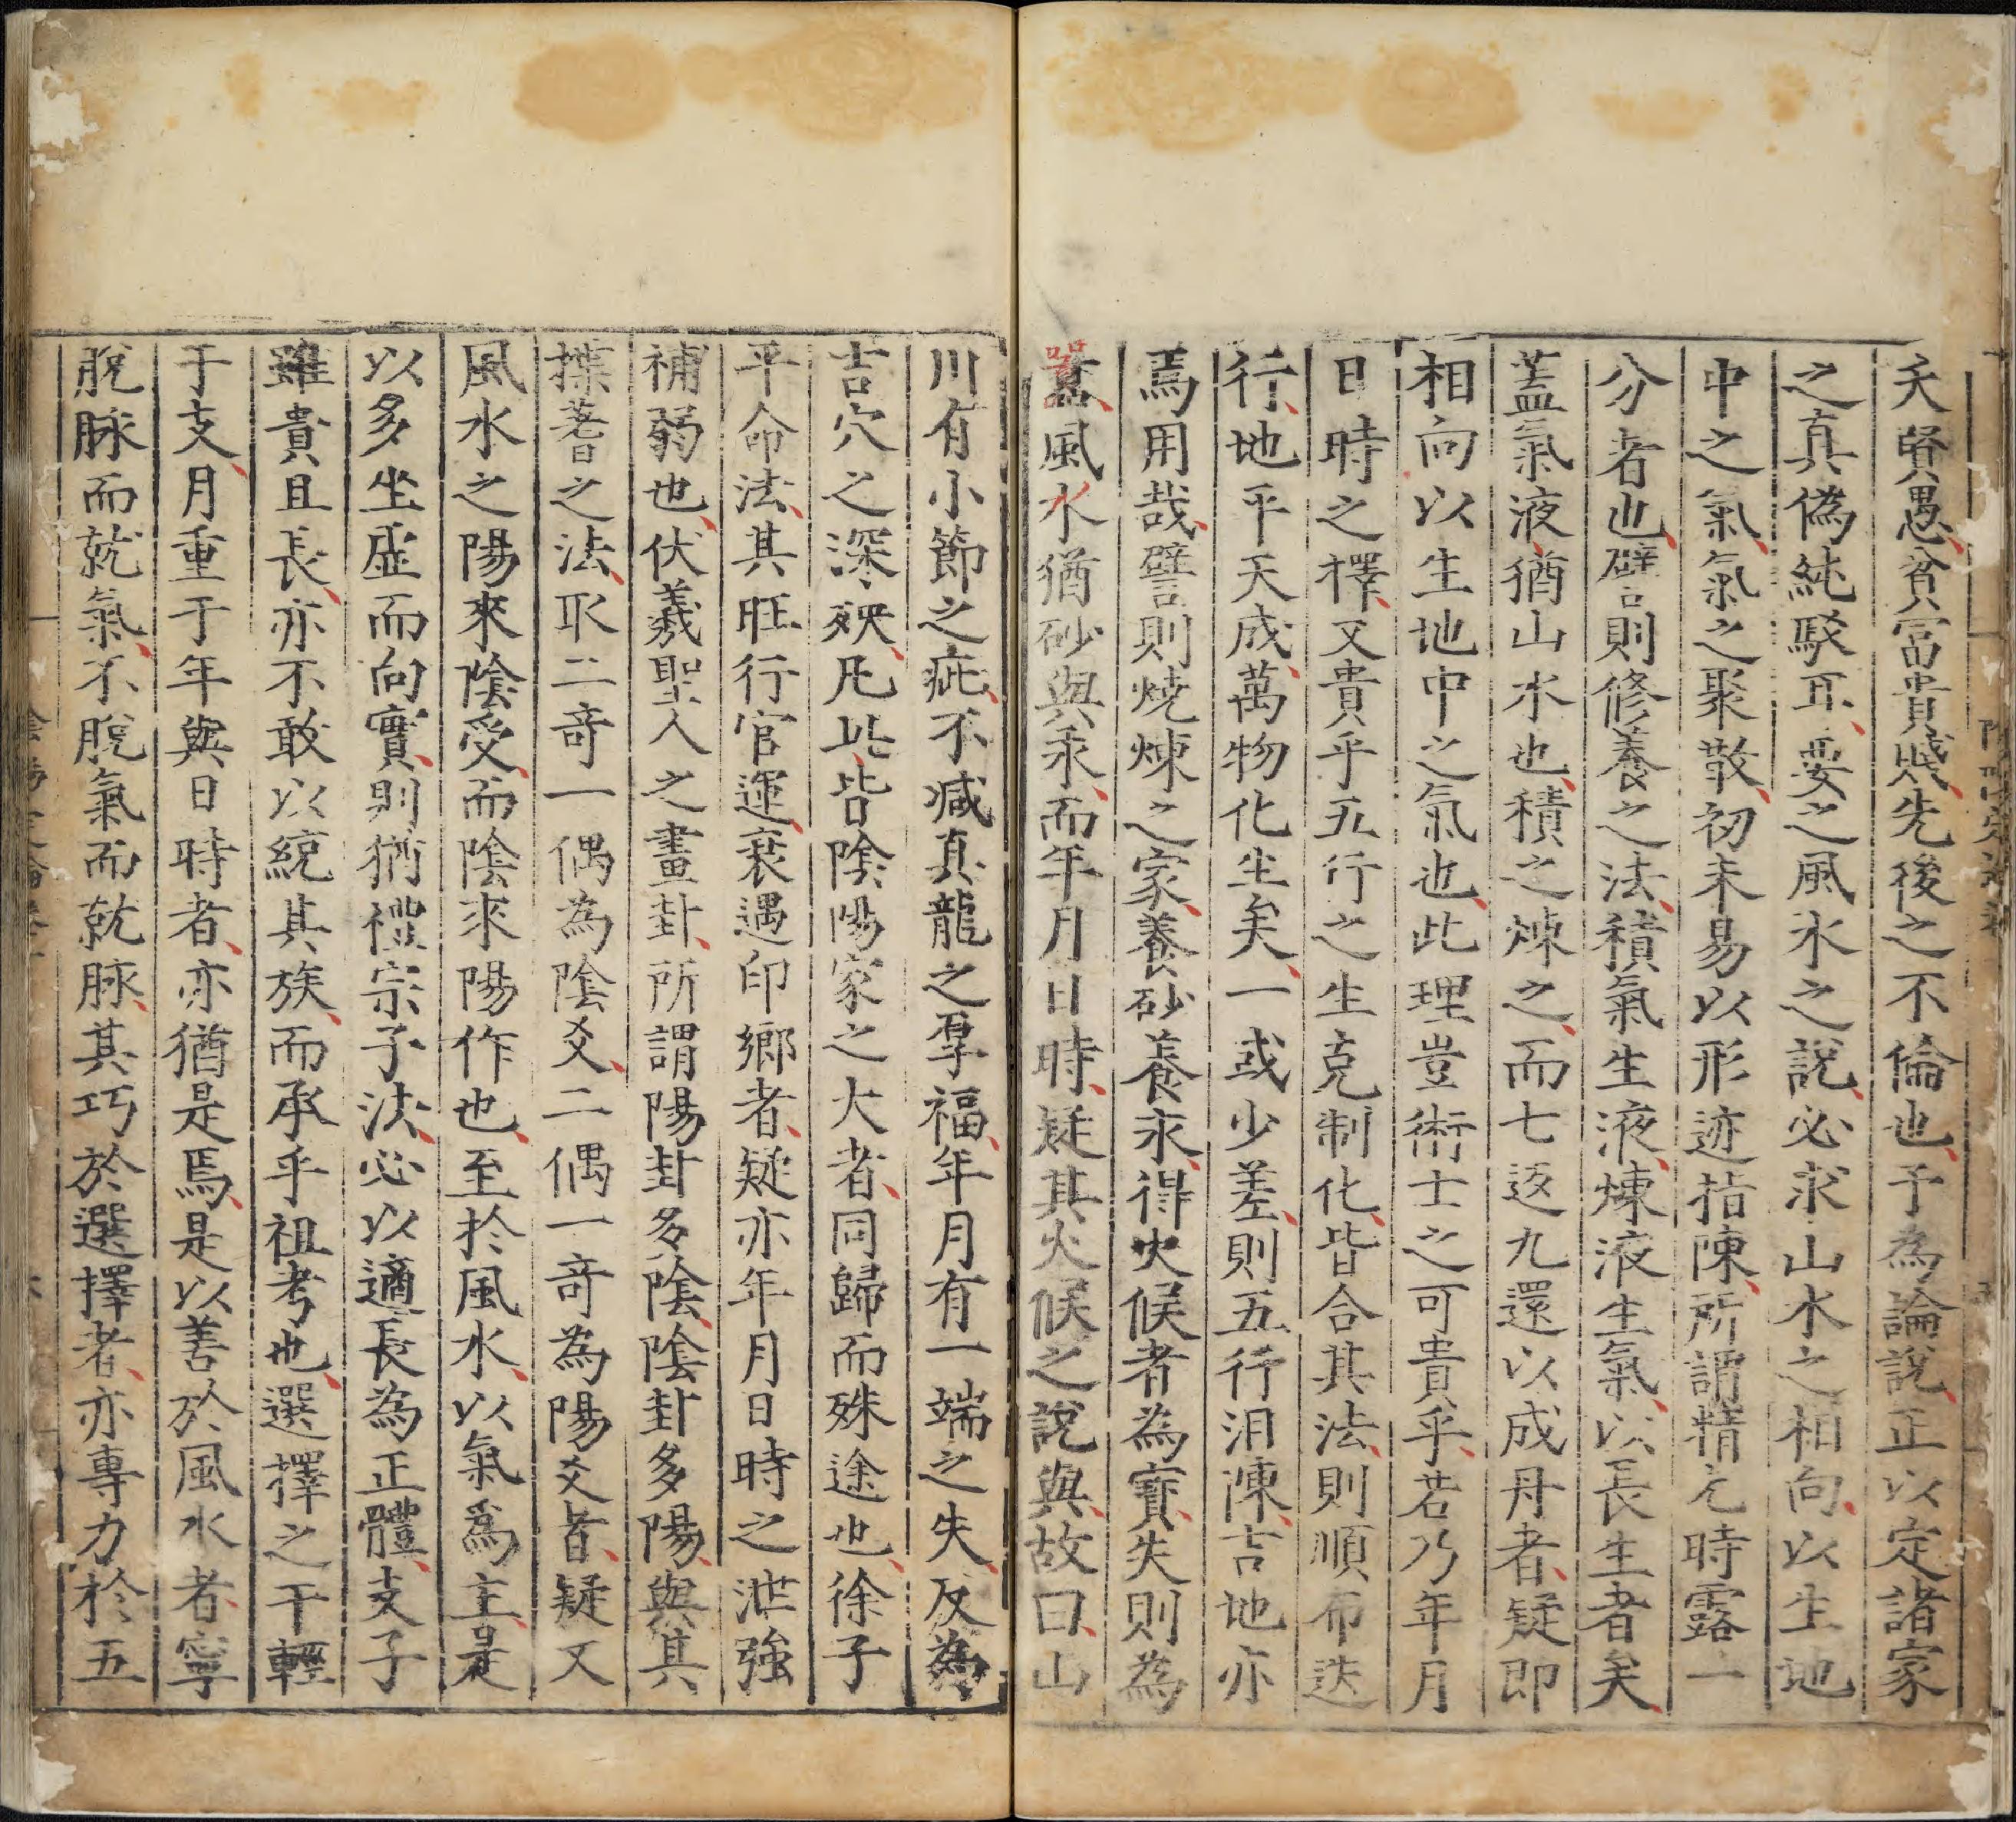 夭賢愚貧富貴賤先後之不倫也予為論說正以定諸家
之真偽純駁耳要之風水之說必求山水之相向以生地
中之氣氣之聚散初未易以形迹指陳所謂精光時露一
分者也譬則修養之法積氣生液煉液生氣以長生者矣
蓋氣液猶山水也積之煉之而七返九還以成丹者疑即
相向以生地中之氣也此理豈術士之可貴乎若乃年月
日時之擇又貴乎五行之生克制化皆合其法則順布迭
行地平天成萬物化生矣一或少差則五行汨陳吉地亦
焉用哉譬則燒煉之家養砂養汞得火候者為寶失則為
風水猶砂與汞而年月日時疑其火候之說與故曰山
川有小節之疵不减真龍之厚福年月有一端之失反為
吉穴之深殃凡此皆陰陽家之大者同歸而殊途也徐子
平命法其旺行官運衰遇印鄉者疑亦年月日時之泄強
補弱也伏羲聖人之畫卦所謂陽卦多陰陰卦多陽與其
揲蓍之法取二奇一偶為陰爻二偶一奇為陽爻者疑又
風水之陽來陰受而陰來陽作也至於風水以氣爲主是
以多坐虛而向實則猶禮宗子法必以適長為正體支子
雖貴且長亦不敢以統其族而承乎祖考也選擇之干輕
于支月重于年與日時者亦猶是焉是以善於風水者寧
脫脉而就氣不脫氣而就脉其巧於選擇者亦專力於五